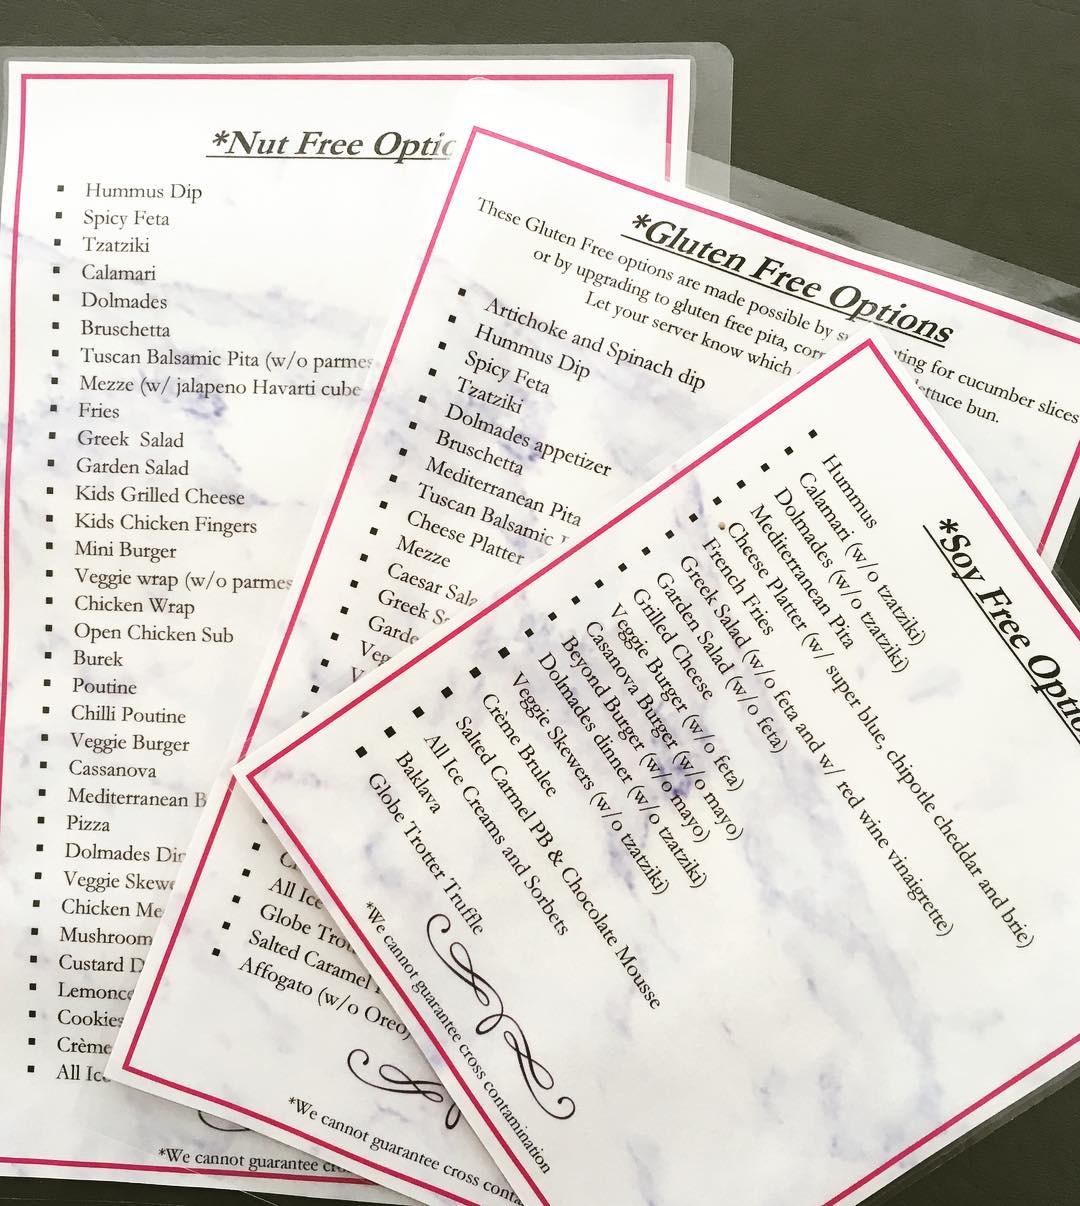 *Nut Free
Hummus Dip
Spicy Feta
Tzatziki
Calamari
Dolmades
Bruschetta
Tuscan Balsamic Pita (w/o
Mezze (w/ jalapeno Havarti cube
Fries
Greek Salad
Garden Salad
Kids Grilled Cheese
Kids Chicken Fingers
Mini Burger
Veggie wrap (w/o
Chicken Wrap
Open Chicken Sub
Burek
Poutine
Chilli Poutine
Veggie Burger
Cassanova
Mediterranean
Pizza
Dolmades
Veggie
Chicken
Mushroom
Custard
Cookies
Crème
All
*We cannot guarantee
*Gluten Free Options
These Gluten Free options are made possible by
for cucumber slices
or by upgrading to gluten free pita,
lettuce bun.
Let your server know which
Artichoke and Spinach dip
Hummus Dip
Spicy Feta
Tzatziki
Dolmades appetizer
Bruschetta
Mediterranean Pita
Tuscan Balsamic
Cheese Platter
Mezze
Caesar
Greek
All Ice
Globe
Salted Caramel
Affogato (w/o Oreo)
*We cannot guarantee cross
*Soy Free
Hummus
Calamari (w/o tzatziki)
Dolmades (w/o tzatziki)
Mediterranean Pita
Cheese Platter (w/ super blue, chipotle cheddar and brie)
French Fries
Greek Salad (w/o feta and w/ red wine vinaigrette)
Garden Salad (w/o feta)
Grilled Cheese
Veggie Burger (w/o feta)
Casanova Burger (w/o mayo)
Beyond Burger (w/o mayo)
Dolmades dinner (w/o tzatziki)
Veggie Skewers (w/o tzatziki)
Crème Brulee
Salted Carmel PB & Chocolate Mousse
All Ice Creams and Sorbets
Baklava
Globe Trotter Truffle
*We cannot guarantee cross contamination